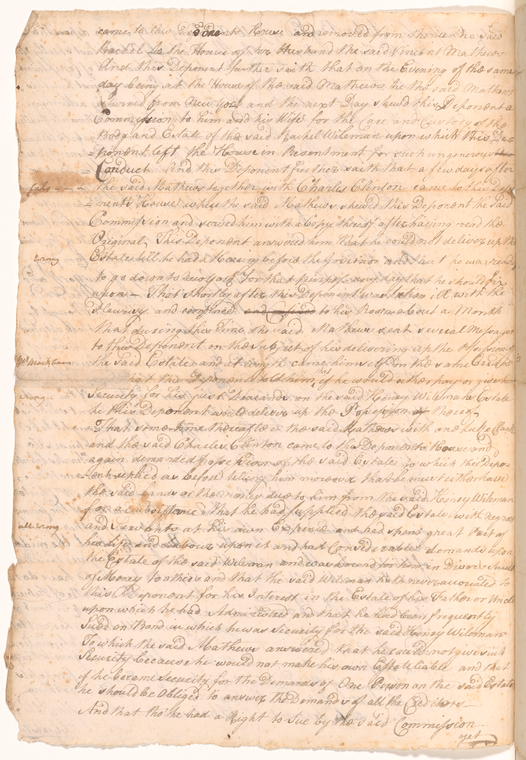 came to this Deponents House and removed from thence the said
Rachel to the House of her Husband the said Vincent Mathews
And this Deponent further saith that on the Evening of the same
day being at the House of the said Mathews he the said Mathews
returned from New York and the next Day shewd this Deponent a
Commission to him and his Wife for the Care and Custody of the
Body and Estate of the said Rachel Wileman upon which this De=
=ponent left the House in Resentment for such ungenerous
Conduct And this Deponent further saith that a few days after
the said Mathews together with Charles Clinton came to this Depo
=nents House where the said Mathews shewd this Deponent the said
Commission and served him with a Copy thereof after having read the
Original, This Deponent answered him that he could not deliver up the
Estate till he had a Hearing before the Governor and that he was ready
to go down to New York for that purpose any day that he should fix
upon That Shortly after this Deponent was taken ill with the
Pleurisy and confined to his Room about a Month
that during this time the said Mathews sent several Messages
to this Deponent on the subject of his delivering up the Possession of
the said Estate and at length came himself on the same
that the Deponent told him that if he would either pay or give him
Security for his just Demands on the said Henry Wilemans Estate
he this Deponent would deliver up the Possession thereof
That some time thereafter the said Mathews with one
and the said Charles Clinton came to this Deponents House and
again demanded Possession of the said Estate to which this Depo=
=nent replied as before telling him moreover that he must either have
the said Lands or the Money due to him from the said Henry Wileman
for a Subsistance that he had supplied the said Estate with Negroes
and Servants at his own Expence and had spent great Part of
his Life and Labour upon it and had Considerable demands upon
the Estate of the said Wileman and was bound for him in Divers Sums
of Money to others and that the said Wileman had never accounted to
this Deponent for his Interest in the Estate of his Father or Uncle
upon which he had Administred and that he had been frequently
Sued on Bonds in which he was Security for the said Henry Wileman
To which the said Mathews answered that he could not give such
Security because he would not make his own Estate liable and that
if he became Security for the Demands of One Person on the said Estate
he should be Obliged to answer the Demands of all the Creditors
And that tho' he had a Right to Sue by the said Commission
yet